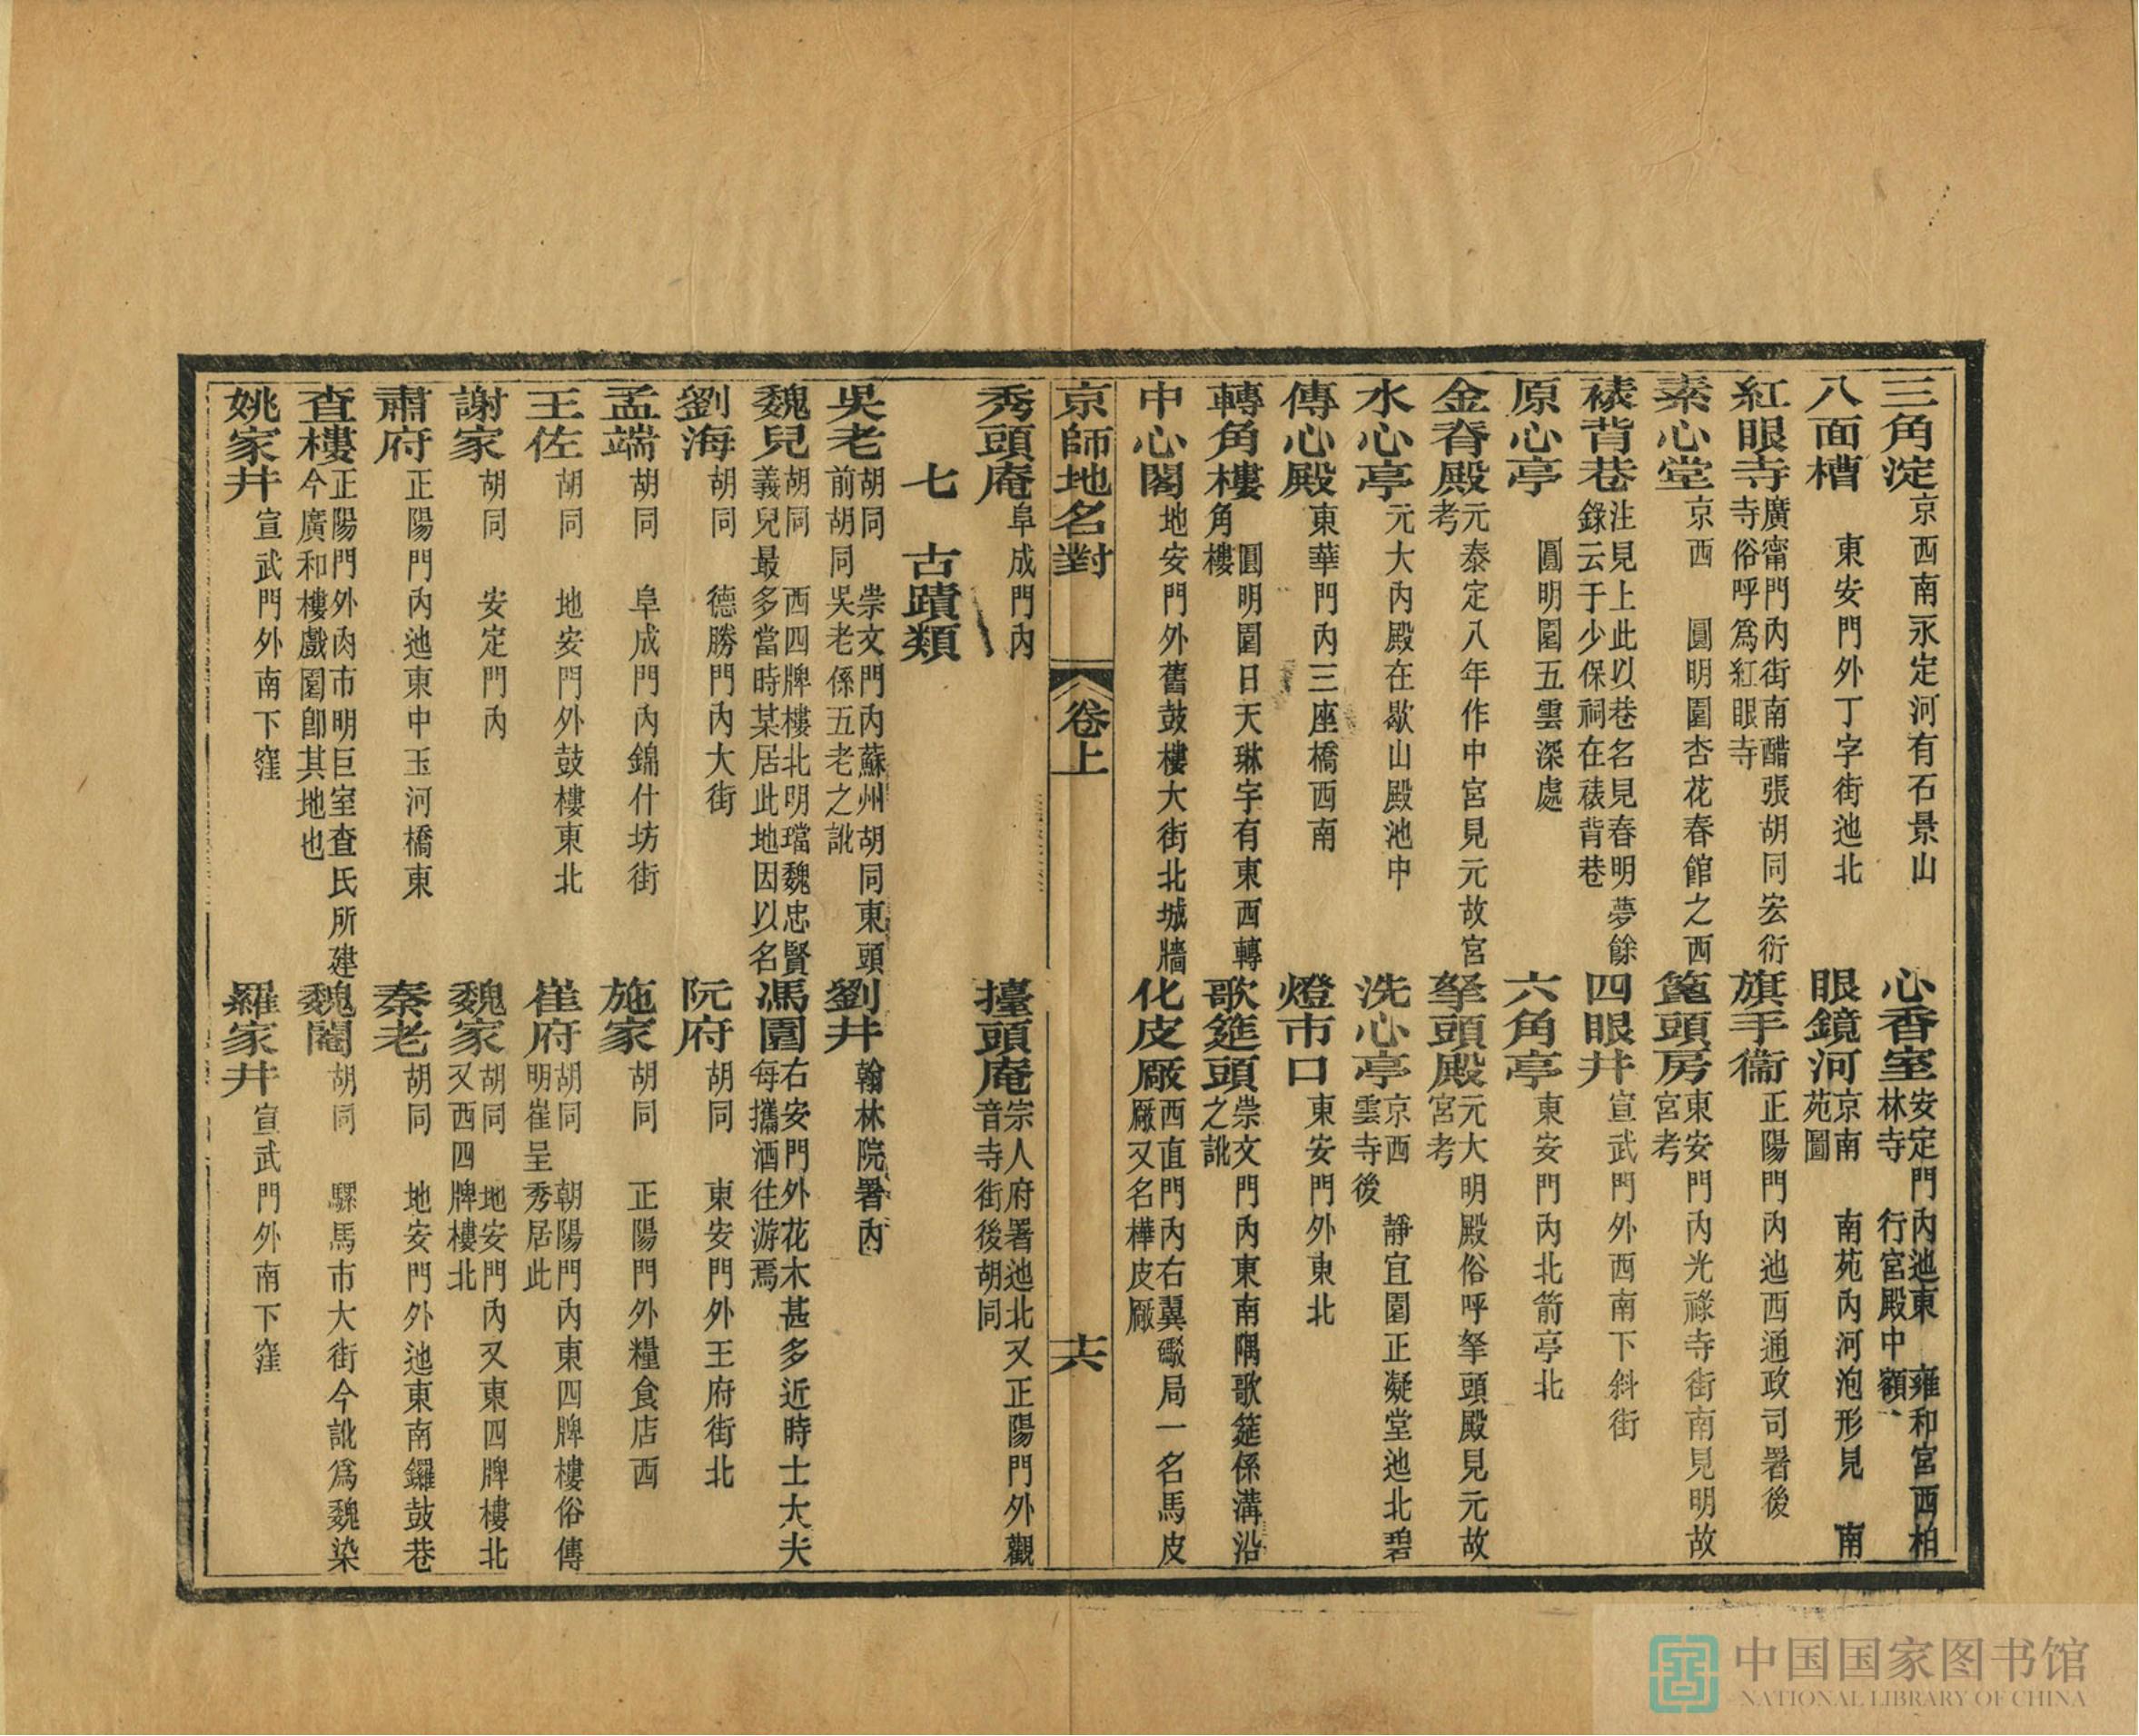 三角淀京西南永定河有石景山　心香室安定門內池東　雍和宮西柏林寺　行宮殿中額
八面槽　東安門外丁字街池北　眼鏡河京南　南苑內河泡形見　南苑圖
紅眼寺廣甯門內街南醋張胡同宏衍寺俗呼爲紅眼寺　旗手衞正陽門內池西通政司署後
素心堂京西　圓明園杏花春館之西　篦頭房東安門內光祿寺街南見明故宮考
裱背巷注見上此以巷名見春明夢餘錄云于少保祠在裱背巷　四眼井宣武門外西南下斜街
原心亭　圓明園五雲深處　六角亭東安門內北箭亭北
金脊殿元泰定八年作中宮見元故宮考　拏頭殿元大明殿俗呼拏頭殿見元故宮考
水心亭元大內殿在歇山殿池中　洗心亭京西　靜宜園正凝堂池北碧雲寺後
傳心殿東華門內三座橋西南　燈市口東安門外東北
轉角樓　圓明園日天琳宇有東西轉角樓　歌筵頭崇文門內東南隅歌筵係溝沿之訛
中心閣地安門外舊鼓樓大街北城牆　化皮厰西直門內右翼礮局一名馬皮厰又名樺皮厰
京師地名對　卷上　十六
秀頭庵阜成門內　擡頭庵宗人府署池北又正陽門外觀音寺街後胡同
七　古蹟類
吳老胡同　崇文門內蘇州胡同東頭前胡同　吳老係五老之訛　劉井翰林院署內
魏兒胡同　西四牌樓北明璫魏忠賢義兒最多當時某居此地因以名　馮園右安門外花木甚多近時士大夫每攜酒往游焉
劉海胡同　德勝門內大街　阮府胡同　東安門外王府街北
孟端胡同　阜成門內錦什坊街　施家胡同　正陽門外糧食店西
王佐胡同　地安門外鼓樓東北　崔府胡同　朝陽門內東四牌樓俗傳明崔呈秀居此
謝家胡同　安定門內　魏家胡同　地安門內又東四牌樓北又西四牌樓北
肅府正陽門內池東中玉河橋東　秦老胡同　地安門外池東南鑼鼓巷
查樓正陽門外肉市明巨室查氏所建今廣和樓戲園卽其地也　魏閹胡同　騾馬市大街今訛爲魏染
姚家井宣武門外南下窪　羅家井宣武門外南下窪
中国国家图书馆
NATIONAL LIBRARY OF CHINA